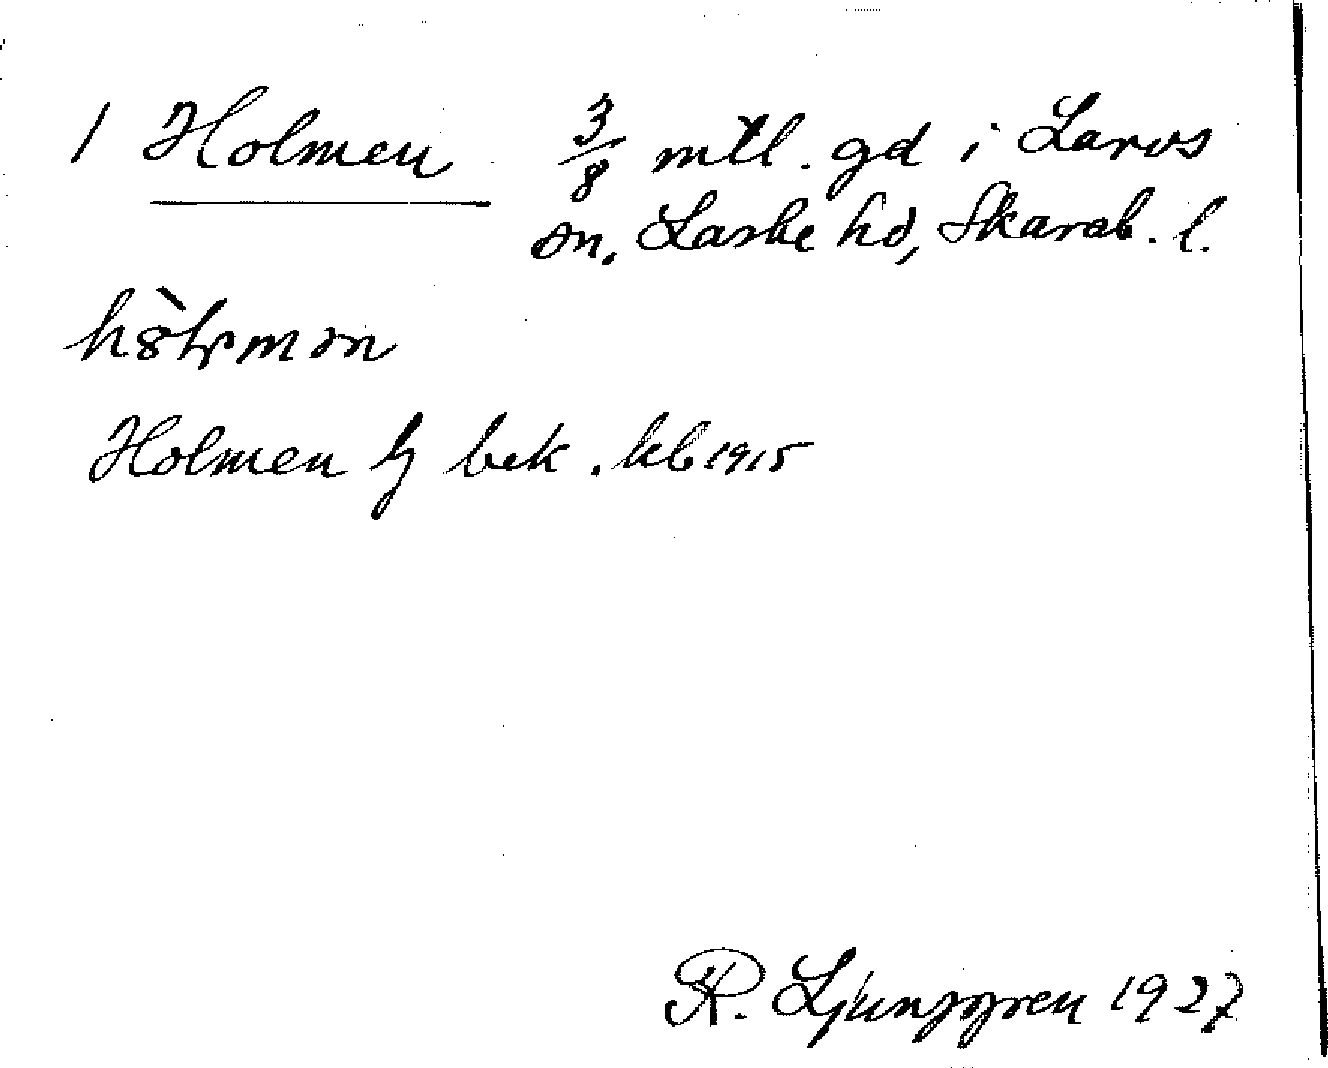 1 Holmen 3/8 mtl. gd i Larvs
sn. Laske hd, Skarab. l.
Holmen bek. kb 1915
R. Ljunggren 1927